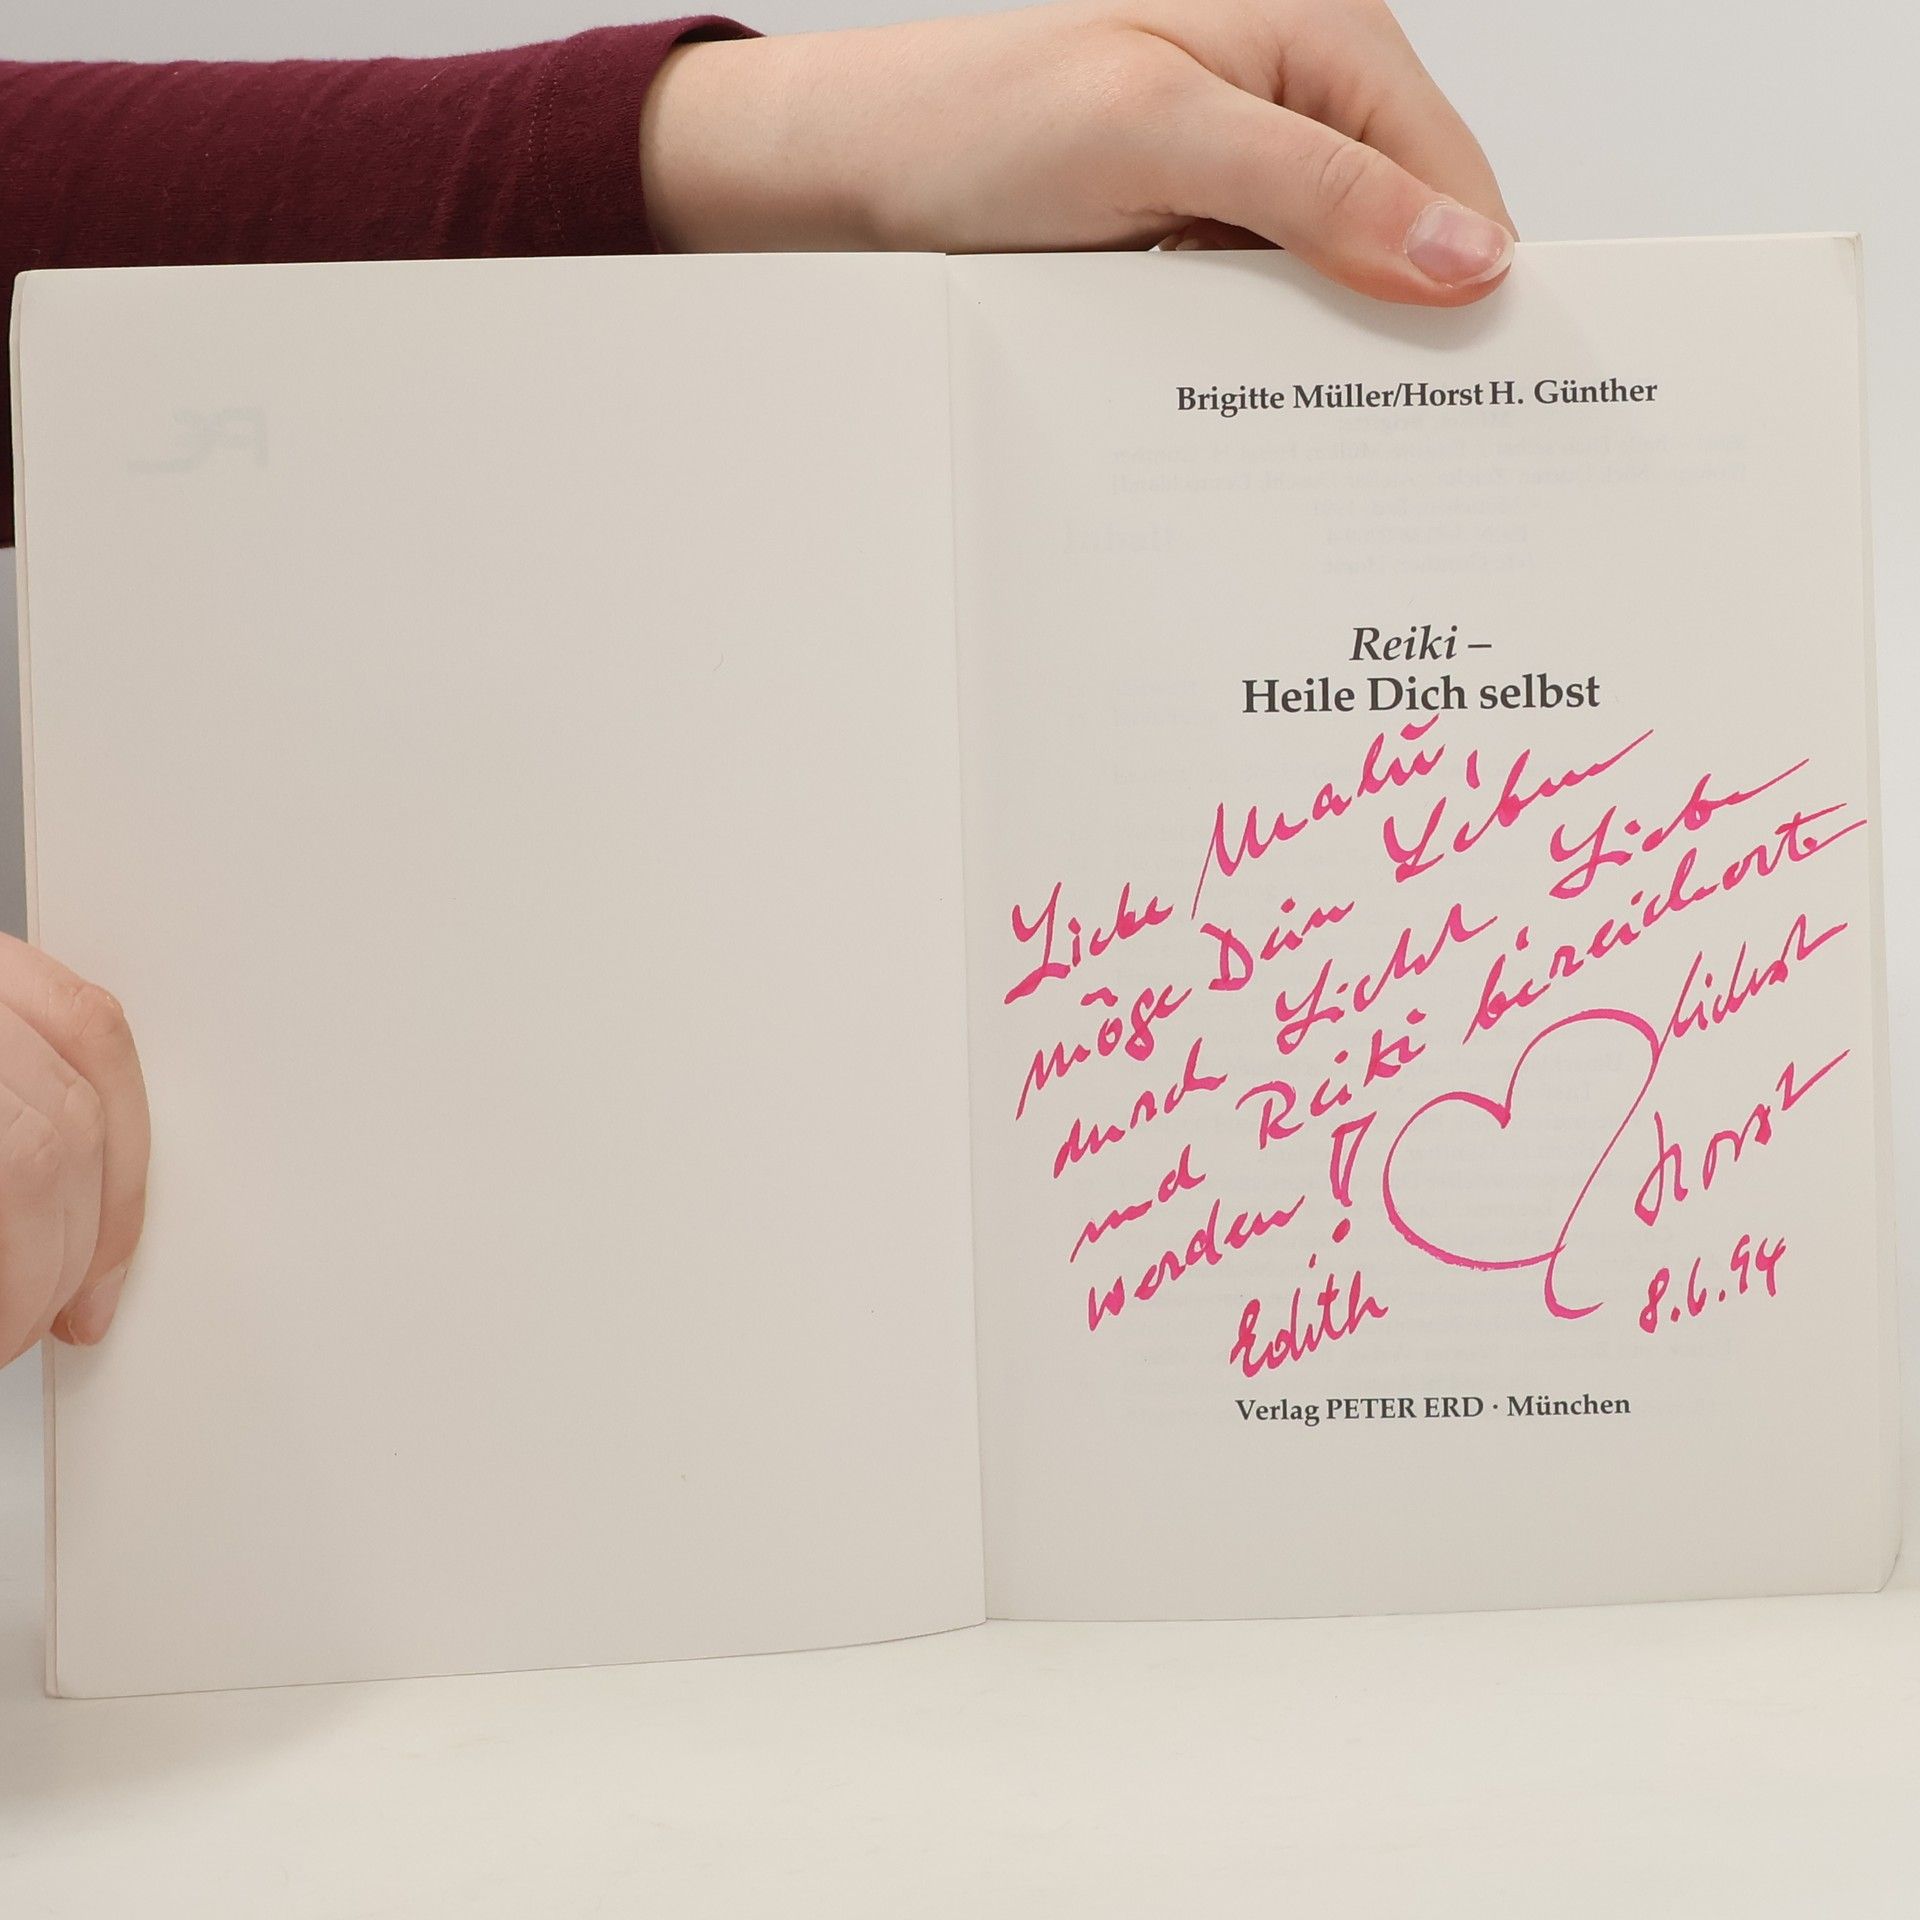 Brigitte Müller/Horst H. Günther
Reiki –
Heile Dich selbst
Liebe
möge Dein Leben
durch Licht, Liebe
und Reiki bereichert
werden!
lichst
Horst
Edith
8.6.94
Verlag PETER ERD · München